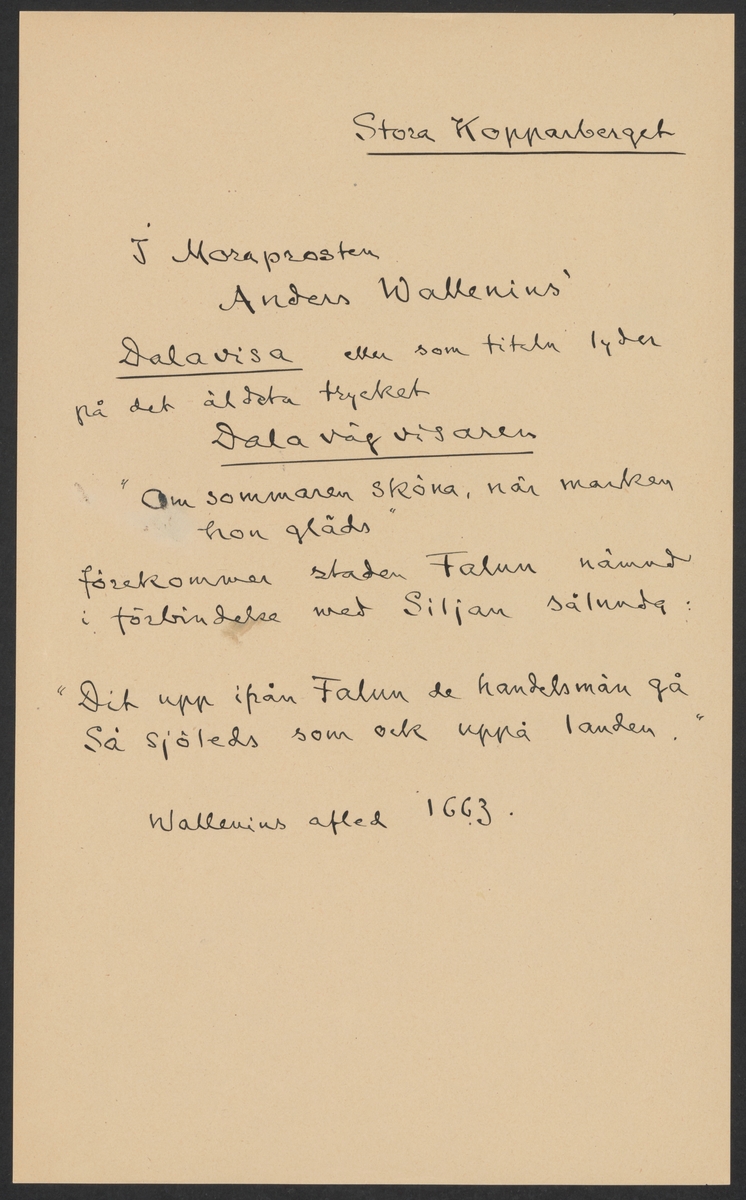 Stora Kopparberget
I Moraprosten
Anders Wallenius'
Dalavisa eller som titeln lyder
på det äldsta trycket
Dala vägvisaren
"Om sommaren sköna, när marken
hon gläds"
förekommer staden Falun nämnd
i förbindelse med Siljan sålunda:
"Dit upp ifrån Falun de handelsmän gå
Så sjöleds som ock uppå landen."
Wallenius afled 1663.